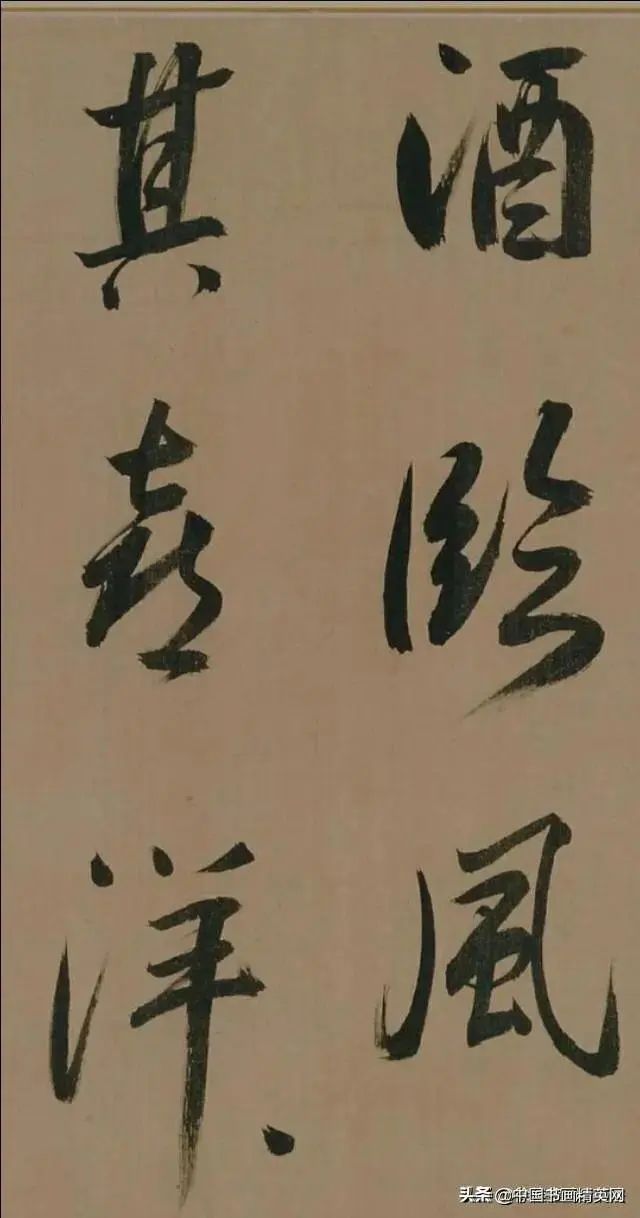 酒臨風
其喜洋、
头条 @中国书画精英网